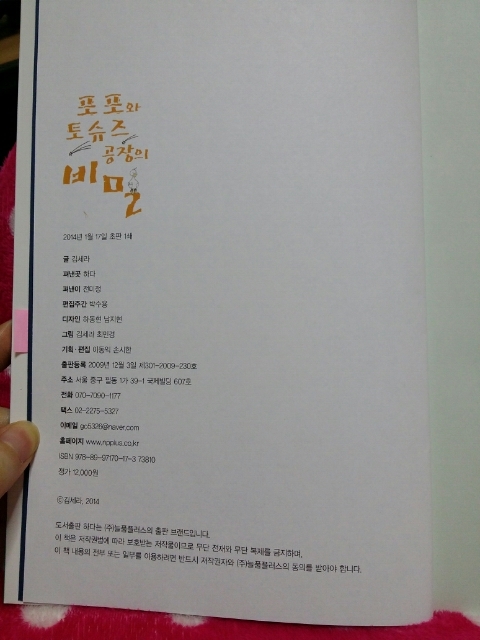 포포와
토슈즈
공장의
비밀
2014년 1월 17일 초판 1쇄
글 김세라
펴낸곳 하다
펴낸이 전미정
편집주간 박수용
디자인 최동현 남지현
그림 김세라 최민경
기획·편집 이동익 손시한
출판등록 2009년 12월 3일 제301-2009-230호
주소 서울 중구 필동 1가 39-1 국제빌딩 607호
전화 070-7090-1177
팩스 02-2275-5327
이메일 go5326@naver.com
홈페이지 www.npplus.co.kr
ISBN 978-89-97170-17-3 73810
정가 12,000원
ⓒ김세라, 2014
도서출판 하다는 (주)늘품플러스의 출판 브랜드입니다.
이 책은 저작권법에 따라 보호받는 저작물이므로 무단 전재와 무단 복제를 금지하며,
이 책 내용의 전부 또는 일부를 이용하려면 반드시 저작권자와 (주)늘품플러스의 동의를 받아야 합니다.